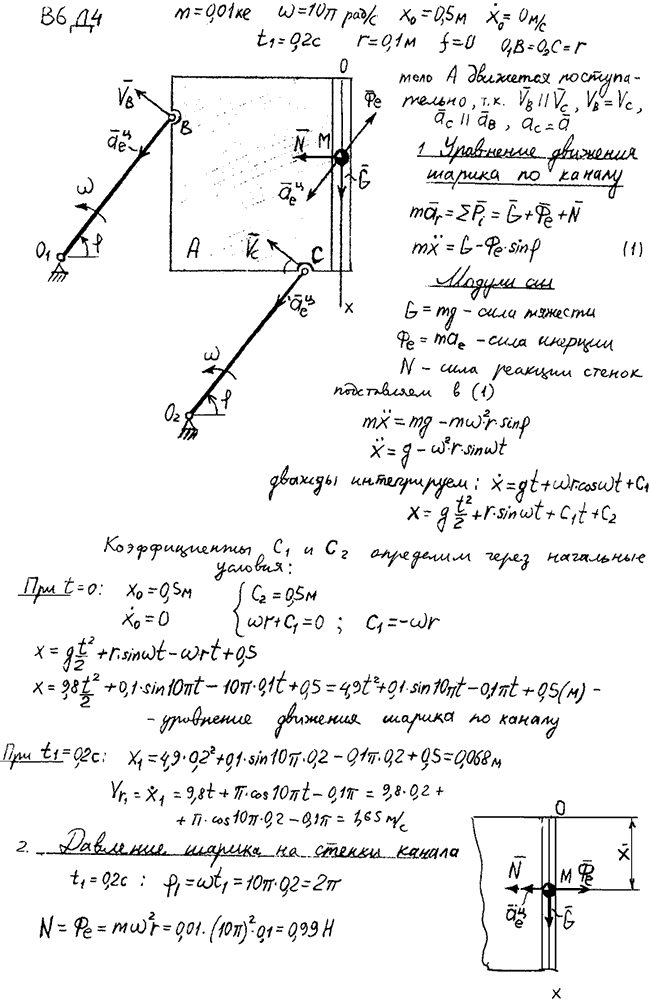 В6 Д4 m=0,01кг ω=10π рад/с x₀=0,5м ẋ₀=0 м/с
t₁=0,2с r=0,1м f=0 O₁B=O₂C=r
тело А движется поступа-
тельно, т.к. V̄_B ∥ V̄_C, V_B=V_C,
ā_C ∥ ā_B, a_C=ā
1 Уравнение движения
шарика по каналу
mā_r=ΣP̄_i=Ḡ+Φ̄_e+N̄
mẍ=G-Φ_e·sinφ (1)
Модули сил
G=mg - сила тяжести
Φ_e=ma_e - сила инерции
N - сила реакции стенок
подставляем в (1)
mẍ=mg-mω²r·sinφ
ẍ=g-ω²·r·sinωt
дважды интегрируем: ẋ=gt+ωr·cosωt+C₁
x=g t²/2+r·sinωt+C₁t+C₂
O
V̄_B
B
ā_e^ц
ω
O₁
φ
A
N̄
M
Φ̄_e
ā_e^ц
Ḡ
V̄_C
C
ā_e^ц
x
ω
O₂
φ
Коэффициенты C₁ и C₂ определим через начальные
условия:
При t=0: x₀=0,5м { C₂=0,5м
ẋ₀=0 ωr+C₁=0 ; C₁=-ωr
x=g t²/2+r·sinωt-ωrt+0,5
x=9,8t²/2+0,1·sin10πt-10π·0,1t+0,5=4,9t²+0,1·sin10πt-0,1πt+0,5(м) -
- уровнение движения шарика по каналу
При t₁=0,2с: x₁=4,9·0,2²+0,1·sin10π·0,2-0,1π·0,2+0,5=0,068м
V_r₁=ẋ₁=9,8t+π·cos10πt-0,1π=9,8·0,2+
+π·cos10π·0,2-0,1π=1,65 м/с
2. Давление шарика на стенки канала
t₁=0,2с : φ₁=ωt₁=10π·0,2=2π
N=Φ_e=mω²r=0,01·(10π)²·0,1=0,99Н
O
x̄
N̄
M
Φ̄_e
ā_e^ц
Ḡ
x